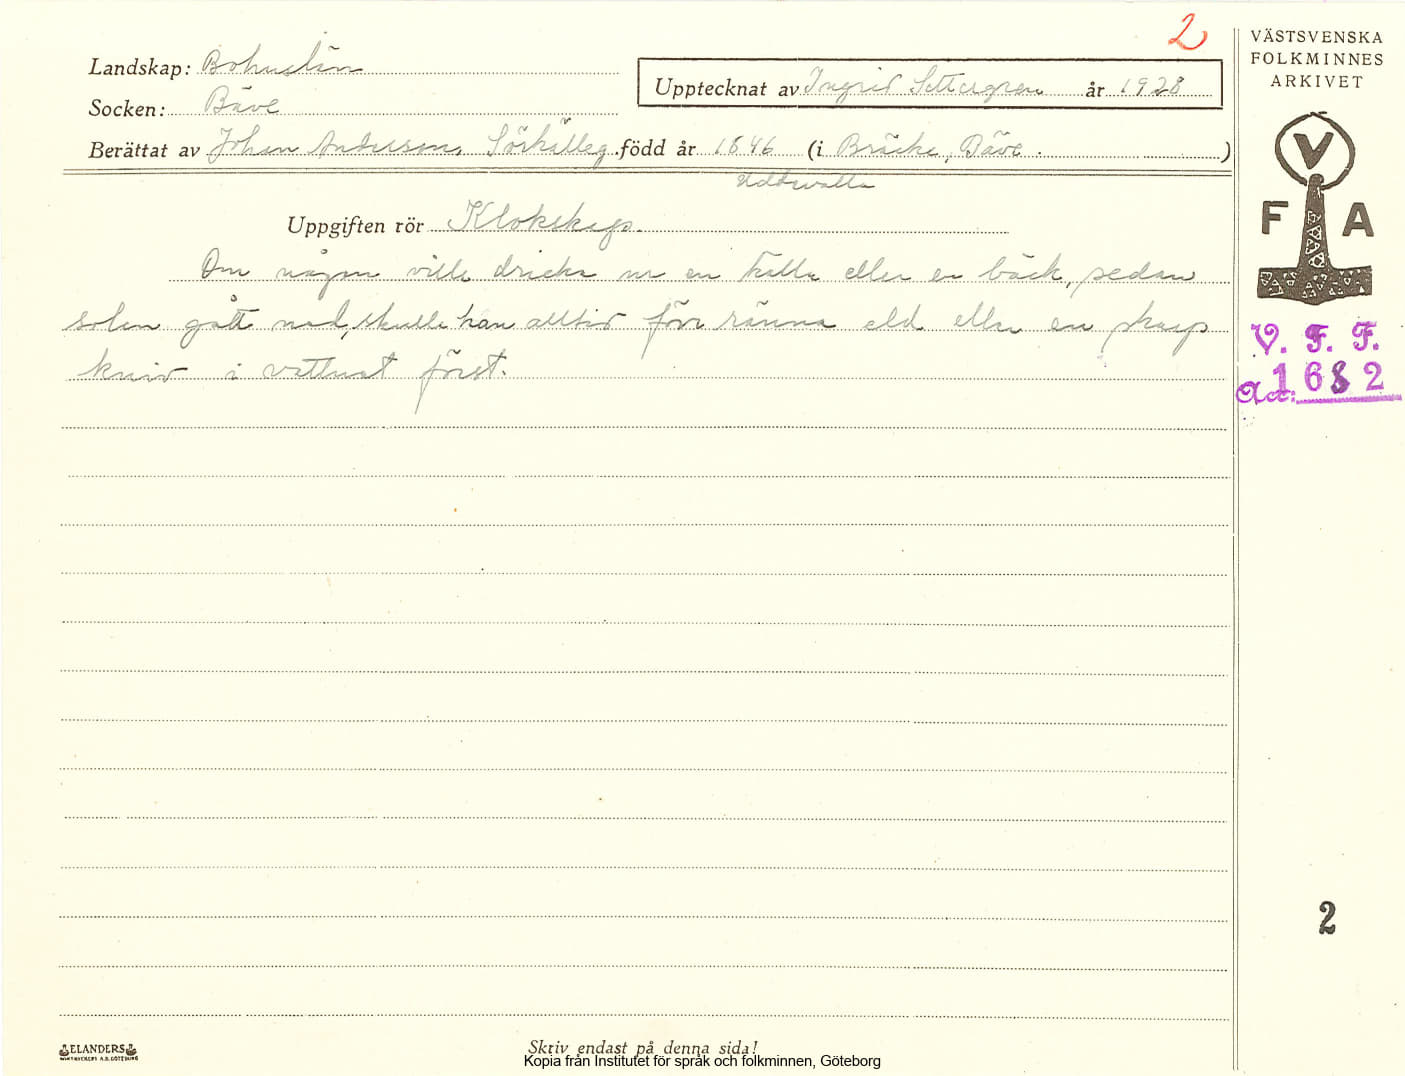 2
VÄSTSVENSKA
FOLKMINNES
ARKIVET
Landskap: Bohuslän
Upptecknat av Ingrid Settergren år 1928
Socken: Bäve
Berättat av Johan Anderson, Sörhälleg. född år 1846 (i Bräcke, Bäve. )
Uddevalla
V F A
Uppgiften rör Klokskap.
Om någon ville dricka ur en källa eller en bäck, sedan
solen gått ned, skulle han alltid förr ränna eld eller en skarp
kniv i vattnet först.
V. F. F.
Acc: 1682
2
ELANDERS
Skriv endast på denna sida!
Kopia från Institutet för språk och folkminnen, Göteborg